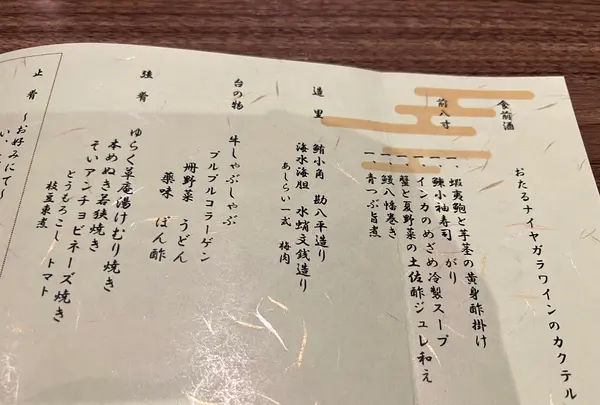 食前酒
おたるナイヤガラワインのカクテル
前八寸
一、蝦夷鮑と芋茎の黄身酢掛け
一、鰊小袖寿司 がり
一、インカのめざめ冷製スープ
一、蟹と夏野菜の土佐酢ジュレ和え
一、鰻八幡巻き
一、青つぶ旨煮
造里
鮪小角 勘八平造り
海水海胆 水蛸文銭造り
あしらい一式 梅肉
台の物
牛しゃぶしゃぶ
プルプルコラーゲン
卅野菜 うどん
薬味 ぽん酢
強肴
ゆらく草庵湯けむり焼き
本めぬき若狭焼き
そいアンチョビネーズ焼き
とうもろこし トマト
枝豆東煮
止肴
～お好みにて～